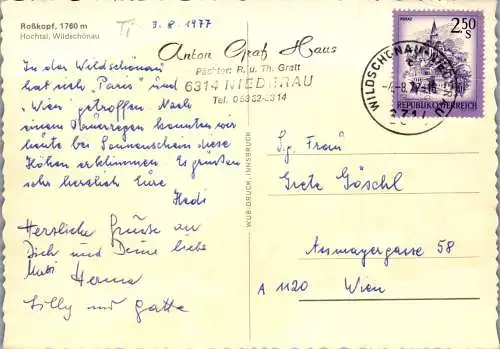 Roßkopf, 1760 m
Hochtal, Wildschönau
3.8.1977
Anton Graf Haus
Pächter: R. u. Th. Gratt
6314 NIEDERAU
Tel. 05332-8314
In der Wildschönau
hat sich "Paris" und
"Wien" getroffen. Nach
einem konnten wir
heute bei Sonnenschein diese
Höhen erklimmen. Es grüssen
sehr herzlich Eure
Hedi
Herzliche Grüsse an
Dich und Deine liebe
Mutti Herma
Lilly und Gatte
WUB-DRUCK, INNSBRUCK
2.50
S
REPUBLIK ÖSTERREICH
WILDSCHÖNAU
S.g. Frau
Grete Göschl
Aumayergasse 58
A 1120 Wien